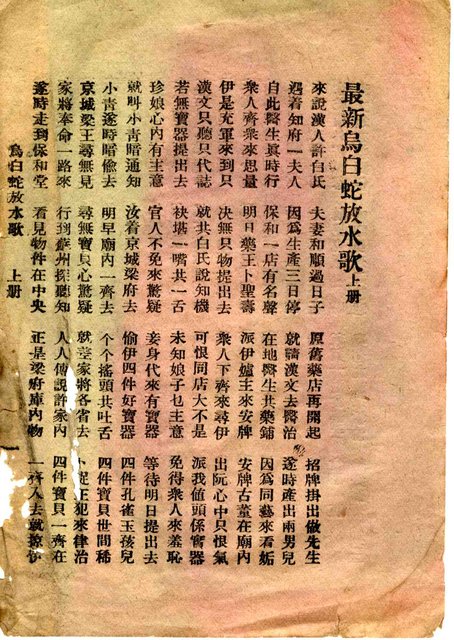 最新烏白蛇放水歌上册
來說漢人許白氏 夫妻和順過日子 原舊藥店再開起 招牌掛出做先生
遇着知府一夫人 因爲生產三日停 就請漢文去醫治 遂時產出兩男兒
自此醫生眞時行 保和一店有名聲 在地醫生共藥鋪 因爲同藝來看妬
衆人齊衆來思量 明日藥王卜聖壽 派伊爐主來安牌 安牌古董在廟內
伊是充軍來到只 決無只物提出去 衆人下齊來尋伊 出阮心中只恨氣
漢文只聽只代誌 就共白氏說知機 可恨同店大不是 派我値頭係寶器
若無寶器提出去 袂堪一嘴共一舌 未知娘子乜主意 免得衆人來羞恥
珍娘心內有主意 官人不免來驚疑 妾身代來有寶器 等待明日提出去
就叫小靑暗通知 汝着京城梁府去 偷伊四件好寶器 四件孔雀玉孩兒
小靑遂時暗偸去 明早廟內一齊去 个个搖頭共吐舌 四件寶貝世間稀
京城梁王尋無見 尋無寶貝心驚疑 就 家將各省去 正犯來律治
家將奉命一路來 行到蘇州探聽知 人人傳說許家內 四件寶貝一齊在
遂時走到保和堂 看見物件在中央 正是梁府庫內物 一齊入去就 伊
烏白蛇放水歌 上册 一